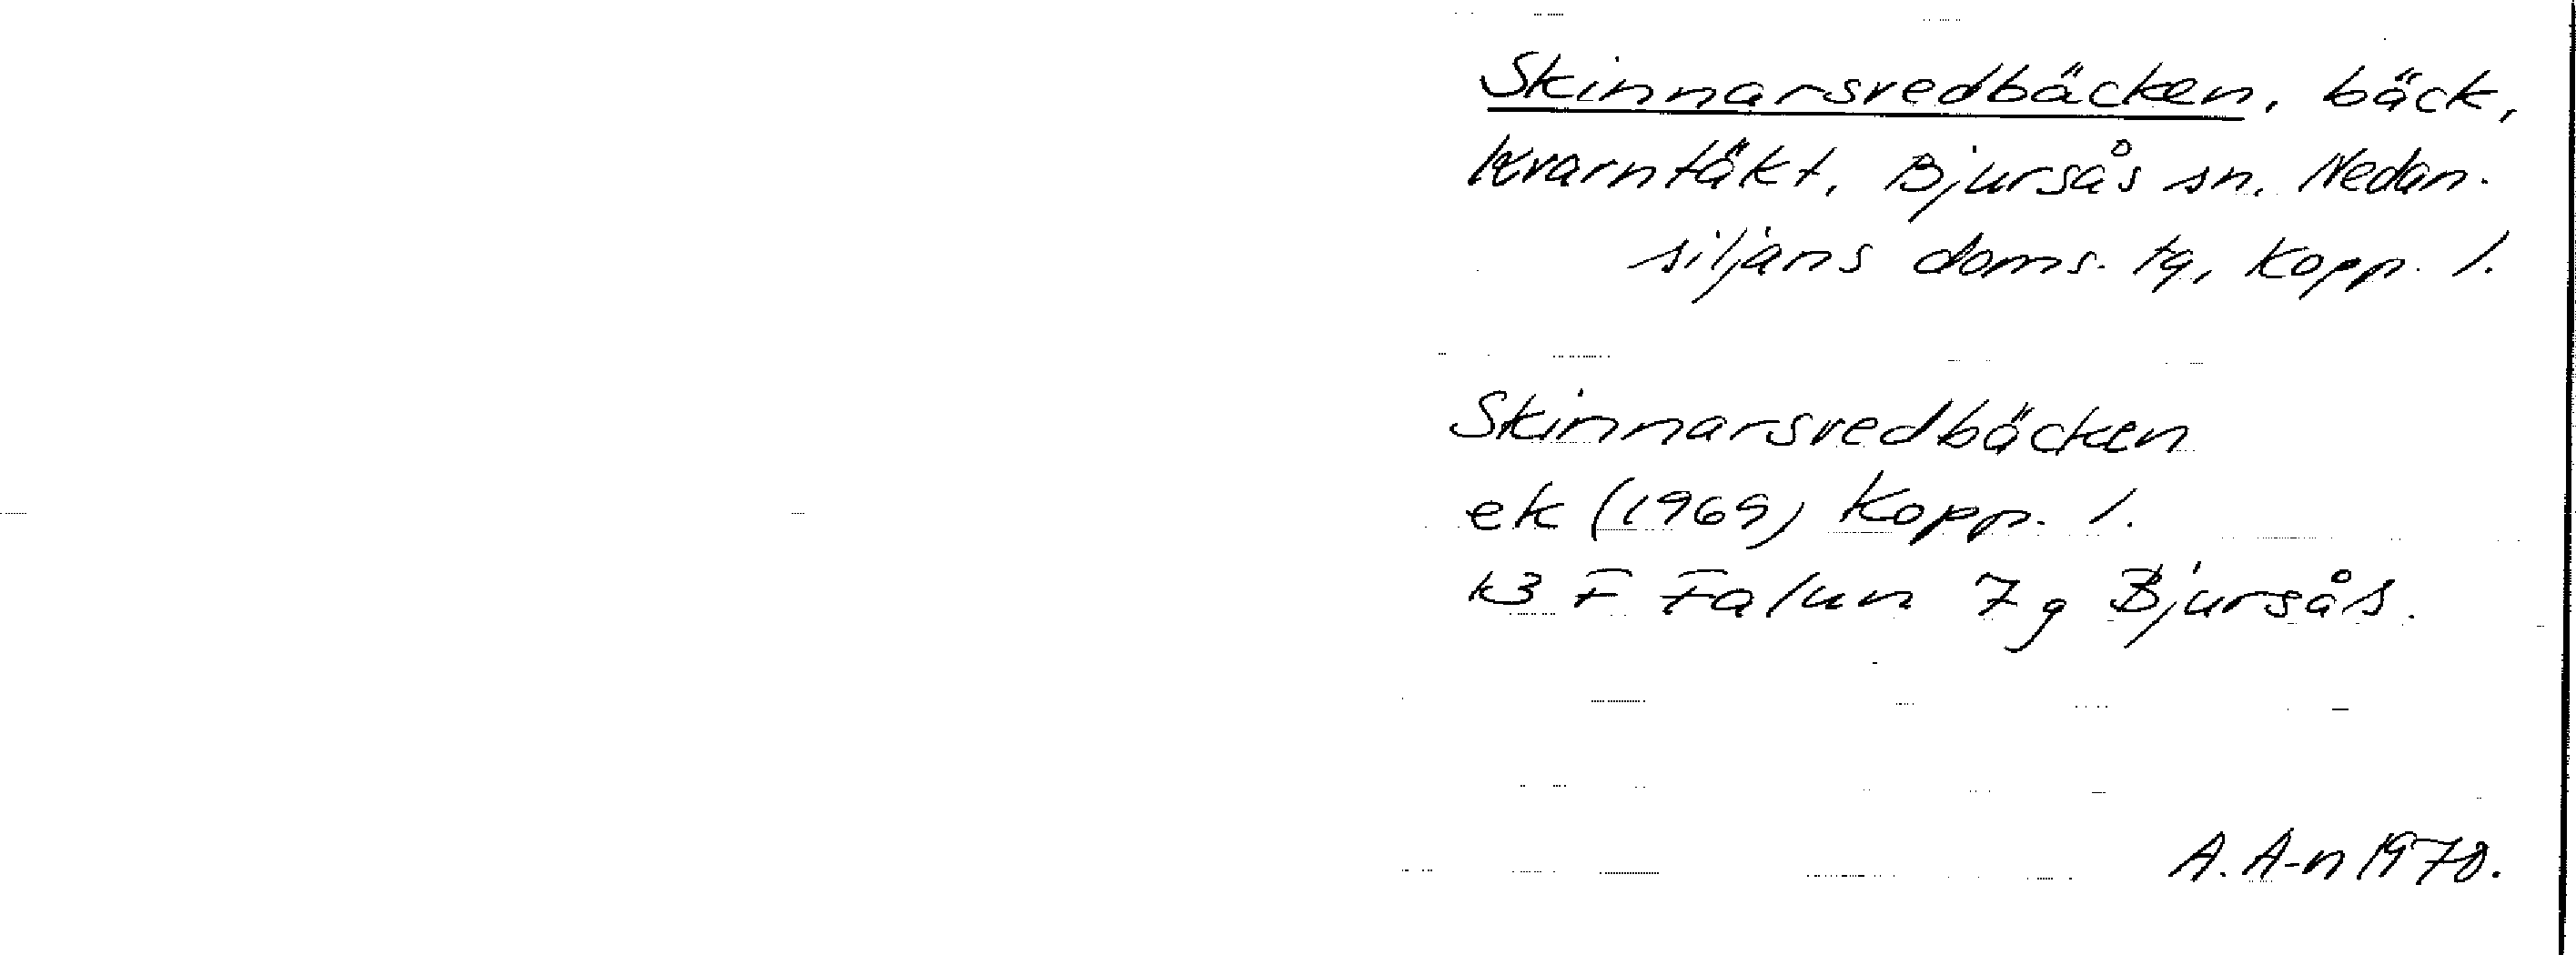 Skinnarsvedbäcken, bäck,
Kvarntäkt, Bjursås sn, Nedan-
siljans doms. tg, Kopp. l.
Skinnarsvedbäcken
ek (1969) Kopp. l.
13 F Falun 7 g Bjursås.
A. A-n 1970.